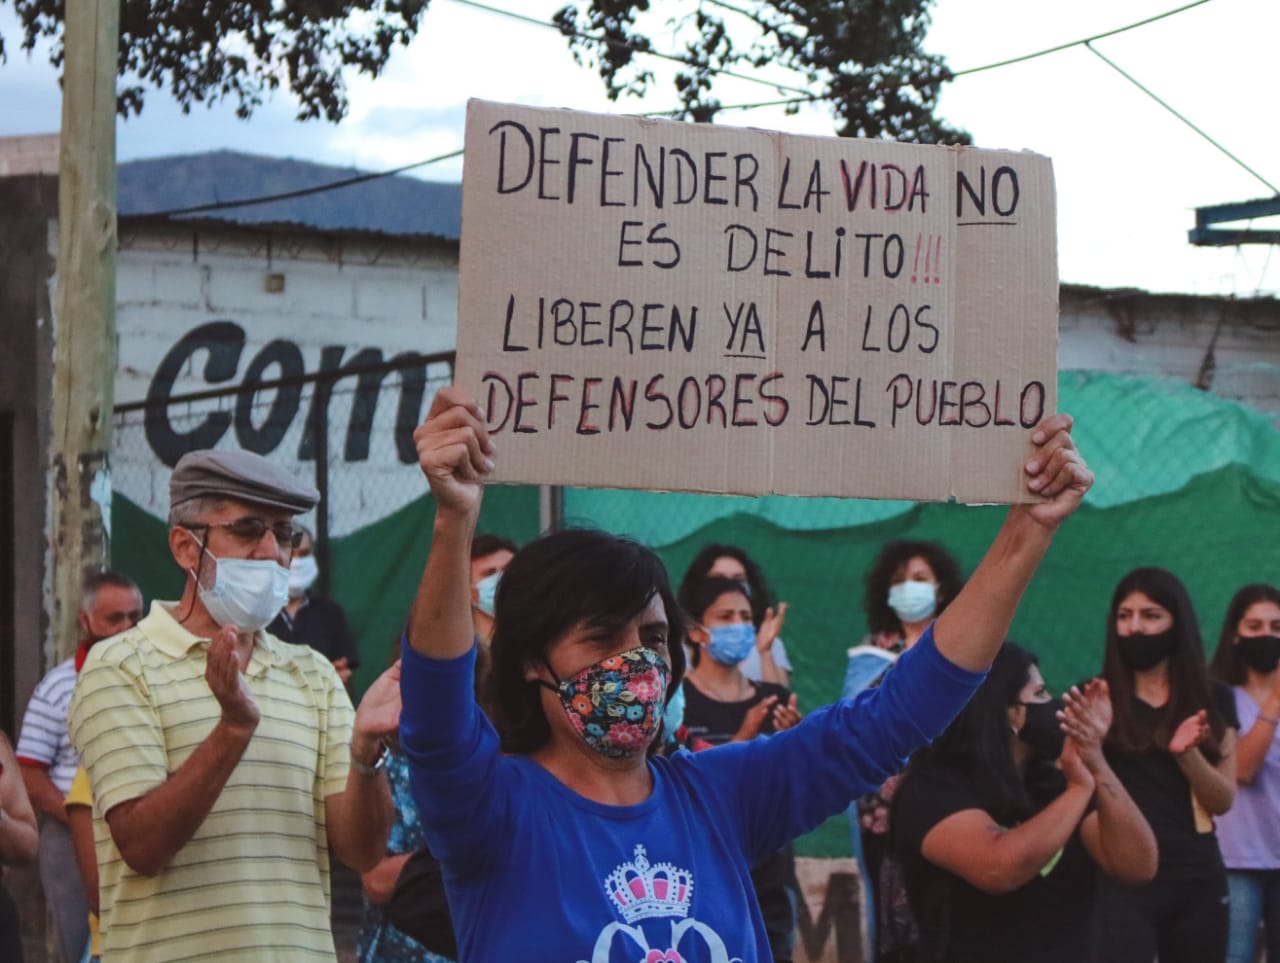 DEFENDER LA VIDA NO
ES DELiTO!!!
LIBEREN YA A LOS
DEFENSORES DEL PUEBLO
Com
M